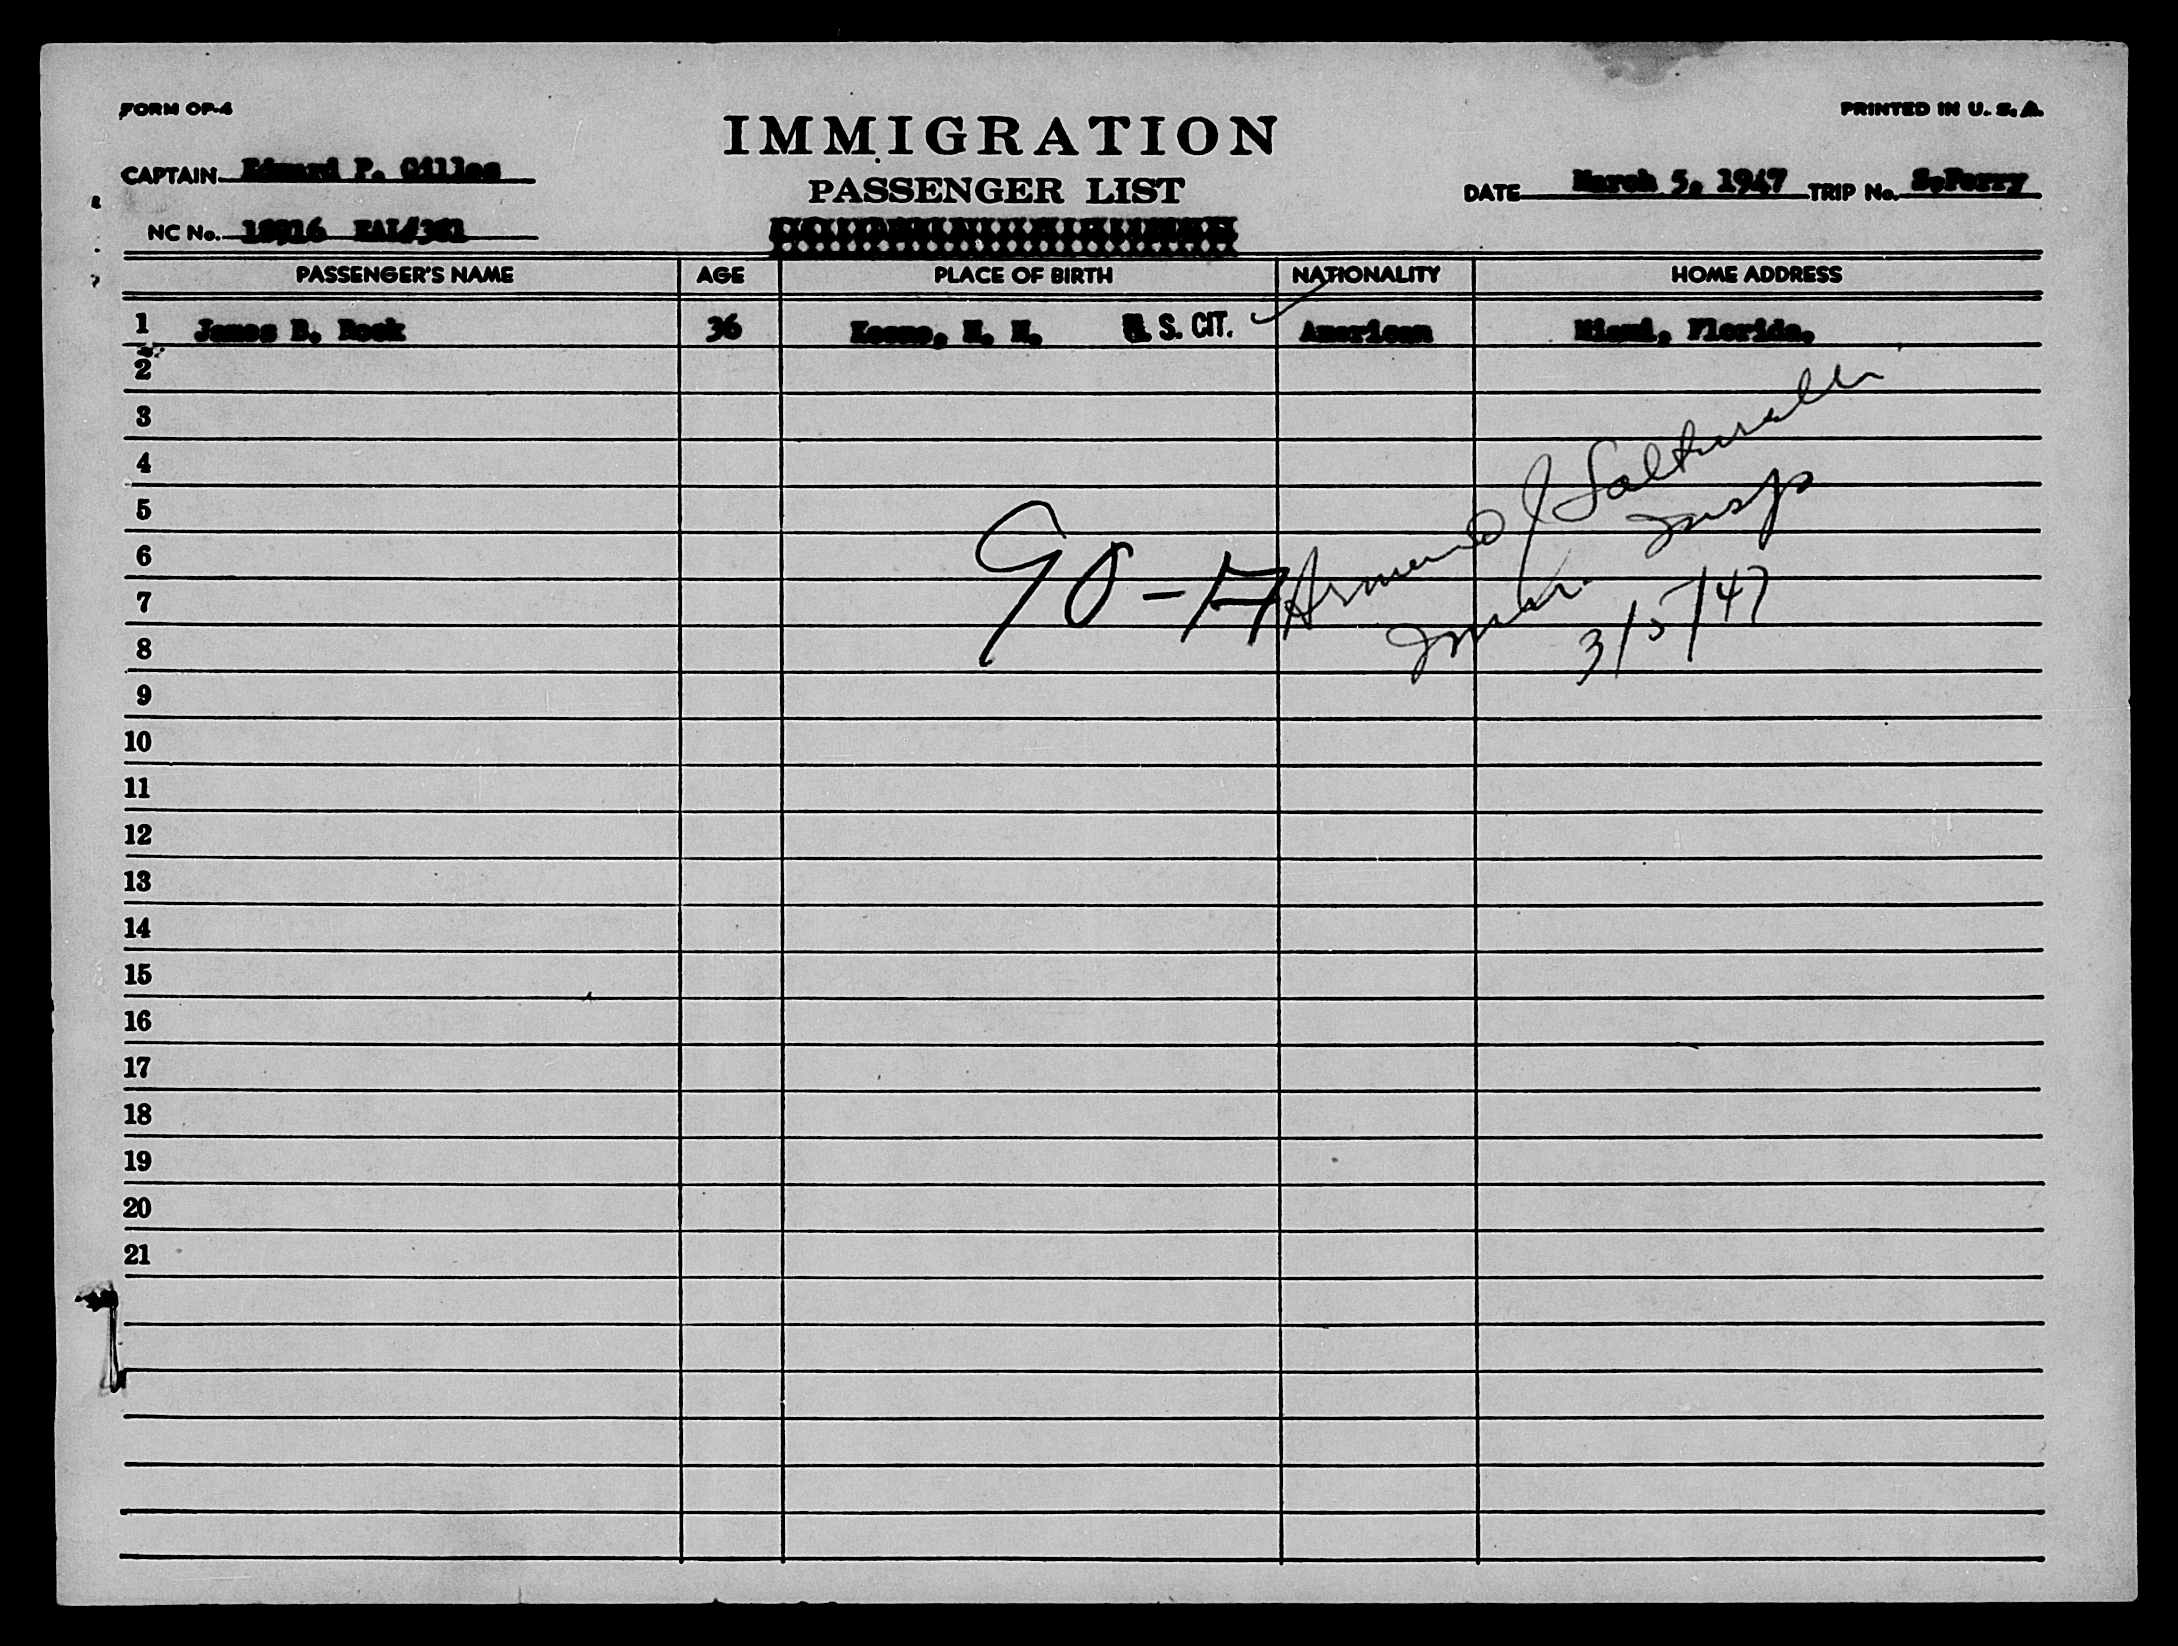 FORM OP-4
PRINTED IN U. S. A.
IMMIGRATION
PASSENGER LIST
CAPTAIN Edward P. Gilles
DATE March 5, 1947 TRIP No. S.Ferry
NC No. EAL#381
PASSENGER'S NAME AGE PLACE OF BIRTH NATIONALITY HOME ADDRESS
1 James B. Rock 36 Keene, N. H. U. S. CIT. American Miami, Florida.
2
3
4
5
6
7
8
9
10
11
12
13
14
15
16
17
18
19
20
21
90-17
Armand J
Insp
3/5/47